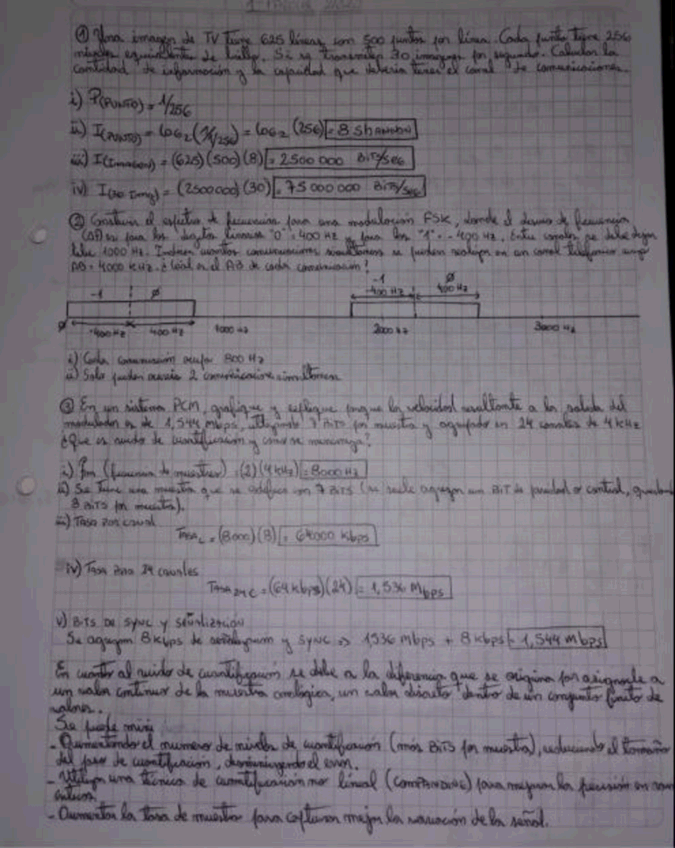 ① Una imagen de TV tiene 625 líneas con 500 puntos por línea. Cada punto tiene 256
niveles equivalentes de brillo. Si se transmiten 30 imágenes por segundo. Calcular la
cantidad de información y la capacidad que debería tener el canal de comunicaciones.
i) P(PUNTO) = 1/256
ii) I(PUNTO) = LOG₂(1/1/256) = LOG₂(256) = 8 SHANNON
iii) I(Imagen) = (625)(500)(8) = 2500 000 BITS/SEG
iv) I(30 Img) = (2500000)(30) = 75 000 000 BITS/SEG
② el espectro de frecuencias para una modulación FSK, donde el desvío de frecuencia
(Δf) es para los dígitos binarios "0" = 400 Hz y para los "1" = -400 Hz. Entre canales se debe dejar
libre 1000 Hz. Indicar cuantas comunicaciones simultáneas se pueden realizar en un canal telefónico
AB = 4000 KHz. ¿Cuál es el AB de cada comunicación?
-1 Ø -1 -400 Hz Ø 400 Hz
Ø -400Hz 400 Hz 1000 Hz 2000 Hz 3000 Hz
i) Cada comunicación ocupa 800 Hz
ii) Solo pueden 2 comunicaciones simultáneas
③ En un sistema PCM, grafique y explique porque la velocidad resultante a la salida del
modulador es de 1,544 Mbps, utilizando 7 BITS por muestra y agrupado en 24 canales de 4 kHz
¿Que es ruido de cuantificación y como se
i) Fm (frecuencia de muestreo) = (2)(4 kHz) = 8000 Hz
ii) Se tiene una muestra que se codifica con 7 BITS (se suele agregar un BIT de paridad o control,
8 BITS por muestra).
iii) TASA POR CANAL
TASA_C = (8000)(8) = 64000 Kbps
iv) TASA PARA 24 canales
TASA 24 C = (64 kbps)(24) = 1,536 Mbps
v) BITS DE SYNC y SEÑALIZACIÓN
Se agregan 8 kbps de señalización y SYNC => 1,536 mbps + 8 kbps = 1,544 mbps
En cuanto al ruido de cuantificación se debe a la diferencia que se origina por asignarle a
un valor continuo de la muestra analógica, un valor discreto dentro de un conjunto finito de
valores.
Se puede
- Aumentando el numero de niveles de cuantificación (más BITS por muestra), reduciendo el tamaño
del paso de cuantificación, disminuyendo el error.
- Utilizar una técnica de cuantificación no lineal (COMPANDING) para mejorar la precisión en
- Aumentar la tasa de muestreo para capturar mejor la variación de la señal.